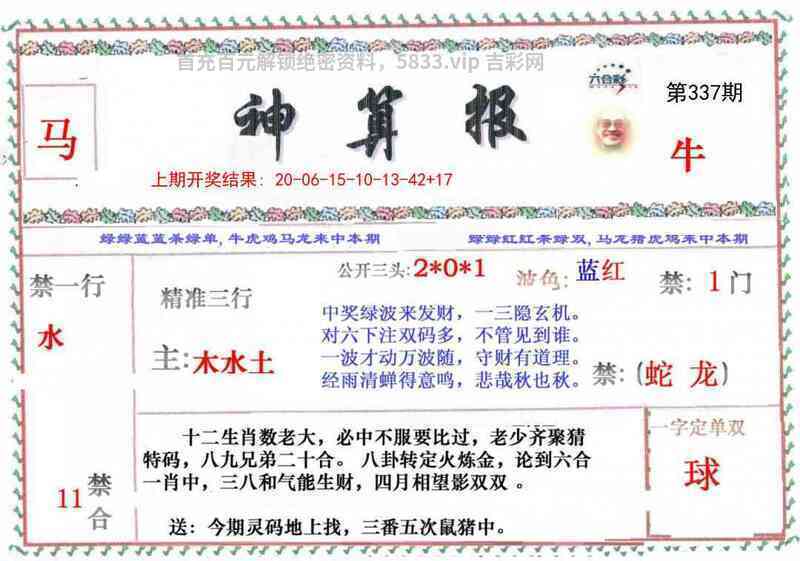 首充百元解锁绝密资料，5833.vip 吉彩网
六合彩
第337期
马
神算报
牛
上期开奖结果: 20-06-15-10-13-42+17
绿绿蓝蓝杀绿单,牛虎鸡马龙来中本期
绿绿红红杀绿双,马龙猪虎鸡来中本期
禁一行
水
精准三行
主:木水土
公开三头:2*0*1
波色:蓝红
禁:1门
中奖绿波来发财，一三隐玄机。
对六下注双码多，不管见到谁。
一波才动万波随，守财有道理。
经雨清蝉得意鸣，悲哉秋也秋。
禁:(蛇 龙)
11禁合
十二生肖数老大，必中不服要比过，老少齐聚猜
特码，八九兄弟二十合。八卦转定火炼金，论到六合
一肖中，三八和气能生财，四月相望影双双 。
送：今期灵码地上找，三番五次鼠猪中。
一字定单双
球